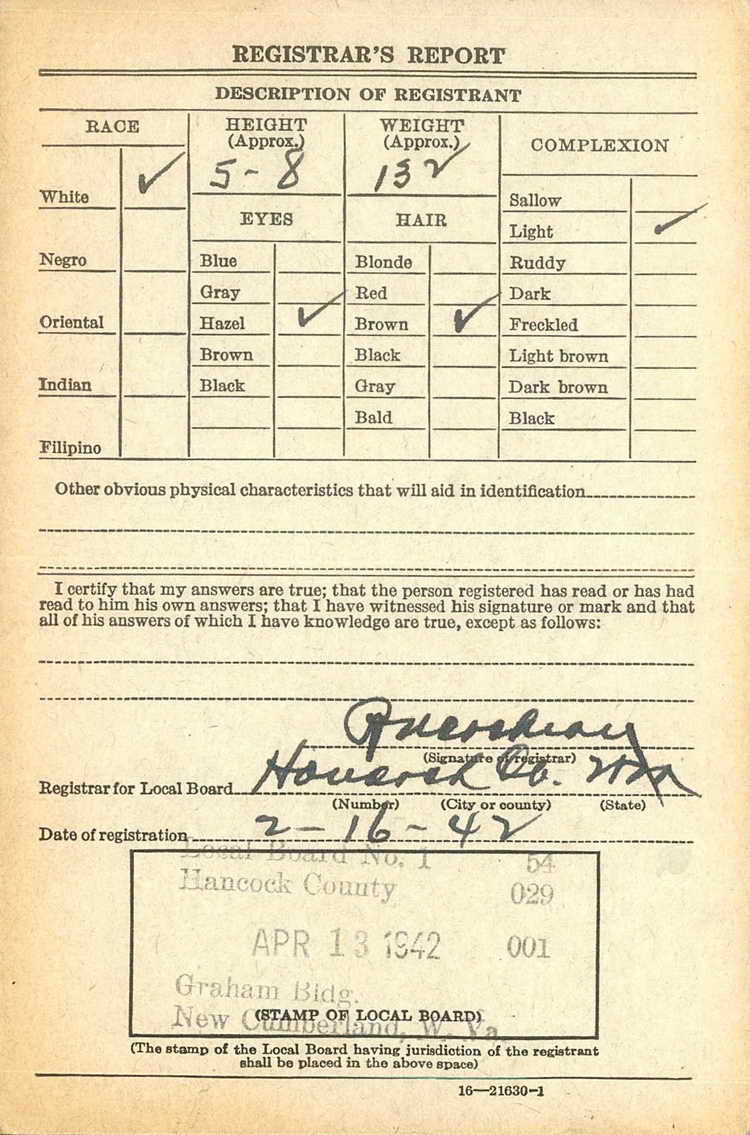 REGISTRAR'S REPORT
DESCRIPTION OF REGISTRANT
RACE
HEIGHT
(Approx.)
WEIGHT
(Approx.)
COMPLEXION
5-8
132
White ✓
EYES
HAIR
Sallow
Light ✓
Negro
Blue
Blonde
Ruddy
Gray
Red
Dark
Oriental
Hazel ✓
Brown ✓
Freckled
Brown
Black
Light brown
Indian
Black
Gray
Dark brown
Bald
Black
Filipino
Other obvious physical characteristics that will aid in identification
I certify that my answers are true; that the person registered has read or has had
read to him his own answers; that I have witnessed his signature or mark and that
all of his answers of which I have knowledge are true, except as follows:
(Signature of registrar)
Registrar for Local Board Hancock Co.
(Number) (City or county) (State)
Date of registration 2-16-42
Local Board No. 1 54
Hancock County 029
APR 13 1942 001
Graham Bldg.
(STAMP OF LOCAL BOARD)
New Cumberland, W. Va.
(The stamp of the Local Board having jurisdiction of the registrant
shall be placed in the above space)
16—21630-1